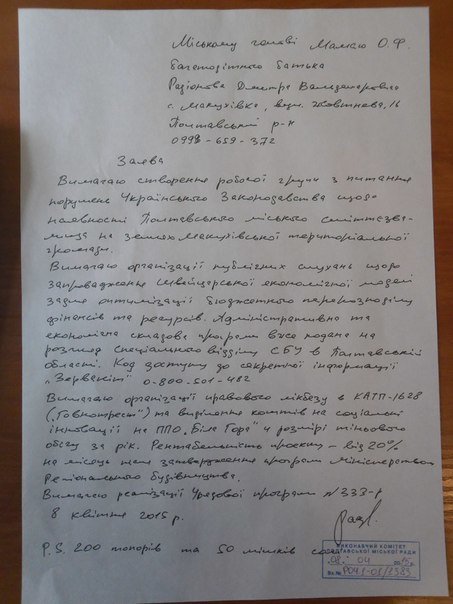 Міському голові Мамаю О.Ф.
багатодітного батька
Радіонова Дмитра Володимировича
с. Макухівка, вул. Жовтнева, 16
Полтавський р-н
099-659-372
Заява
Вимагаю створення робочої групи з питання
порушень Українського Законодавства щодо
наявності Полтавського міського сміттєзва-
лища на землях Макухівської територіальної
громади.
Вимагаю організації публічних слухань щодо
запровадження Швейцарської економічної моделі
задля оптимізації бюджетного перерозподілу
фінансів та ресурсів. Адміністративна та
економічна складова програми вже подана на
розгляд спеціального відділу СБУ в Полтавській
області. Код доступу до секретної інформації
0-800-501-482
Вимагаю організації правового лікбезу в КАТП-1628
та виділення коштів на соціальні
інновації на ППО „Біла Гора" у розмірі тіньового
обігу за рік. Рентабельність проекту - від 20%
на місяць після затвердження програми Міністерством
Регіонального будівництва.
Вимагаю реалізації Урядової програми №333-р
8 квітня 2015 р.
P.S. 200 топорів та 50 мішків
ВИКОНАВЧИЙ КОМІТЕТ
ПОЛТАВСЬКОЇ МІСЬКОЇ РАДИ
„08" 04 2015р.
Вх.№